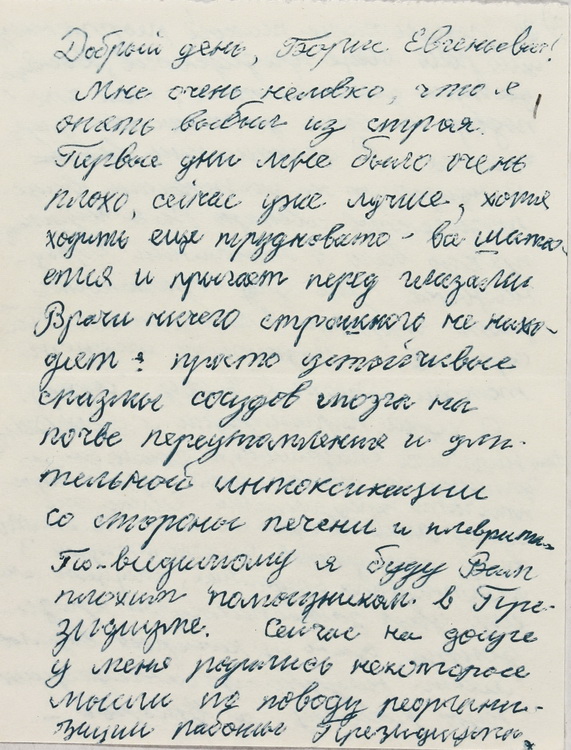 Добрый день, Борис Евгеньевич!
Мне очень неловко, что я
опять выбыл из строя.
Первые дни мне было очень
плохо, сейчас уже лучше, хотя
ходить еще трудновато - все шата-
ется и прыгает перед глазами
Врачи ничего страшного не нахо-
дят: просто устойчивые
спазмы сосудов мозга на
почве переутомления и дли-
тельной интоксикации
со стороны печени и плеврита
По-видимому я буду Вам
плохим помощником в Пре-
зидиуме. Сейчас на досуге
у меня родились некоторые
мысли по поводу реоргани-
зации работы Президиума